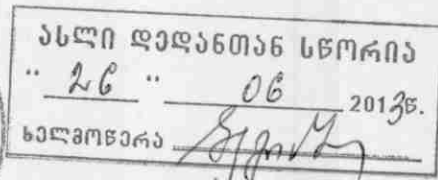 ასლი დედანთან სწორია
" 26 " 06 2013წ.
ხელმოწერა